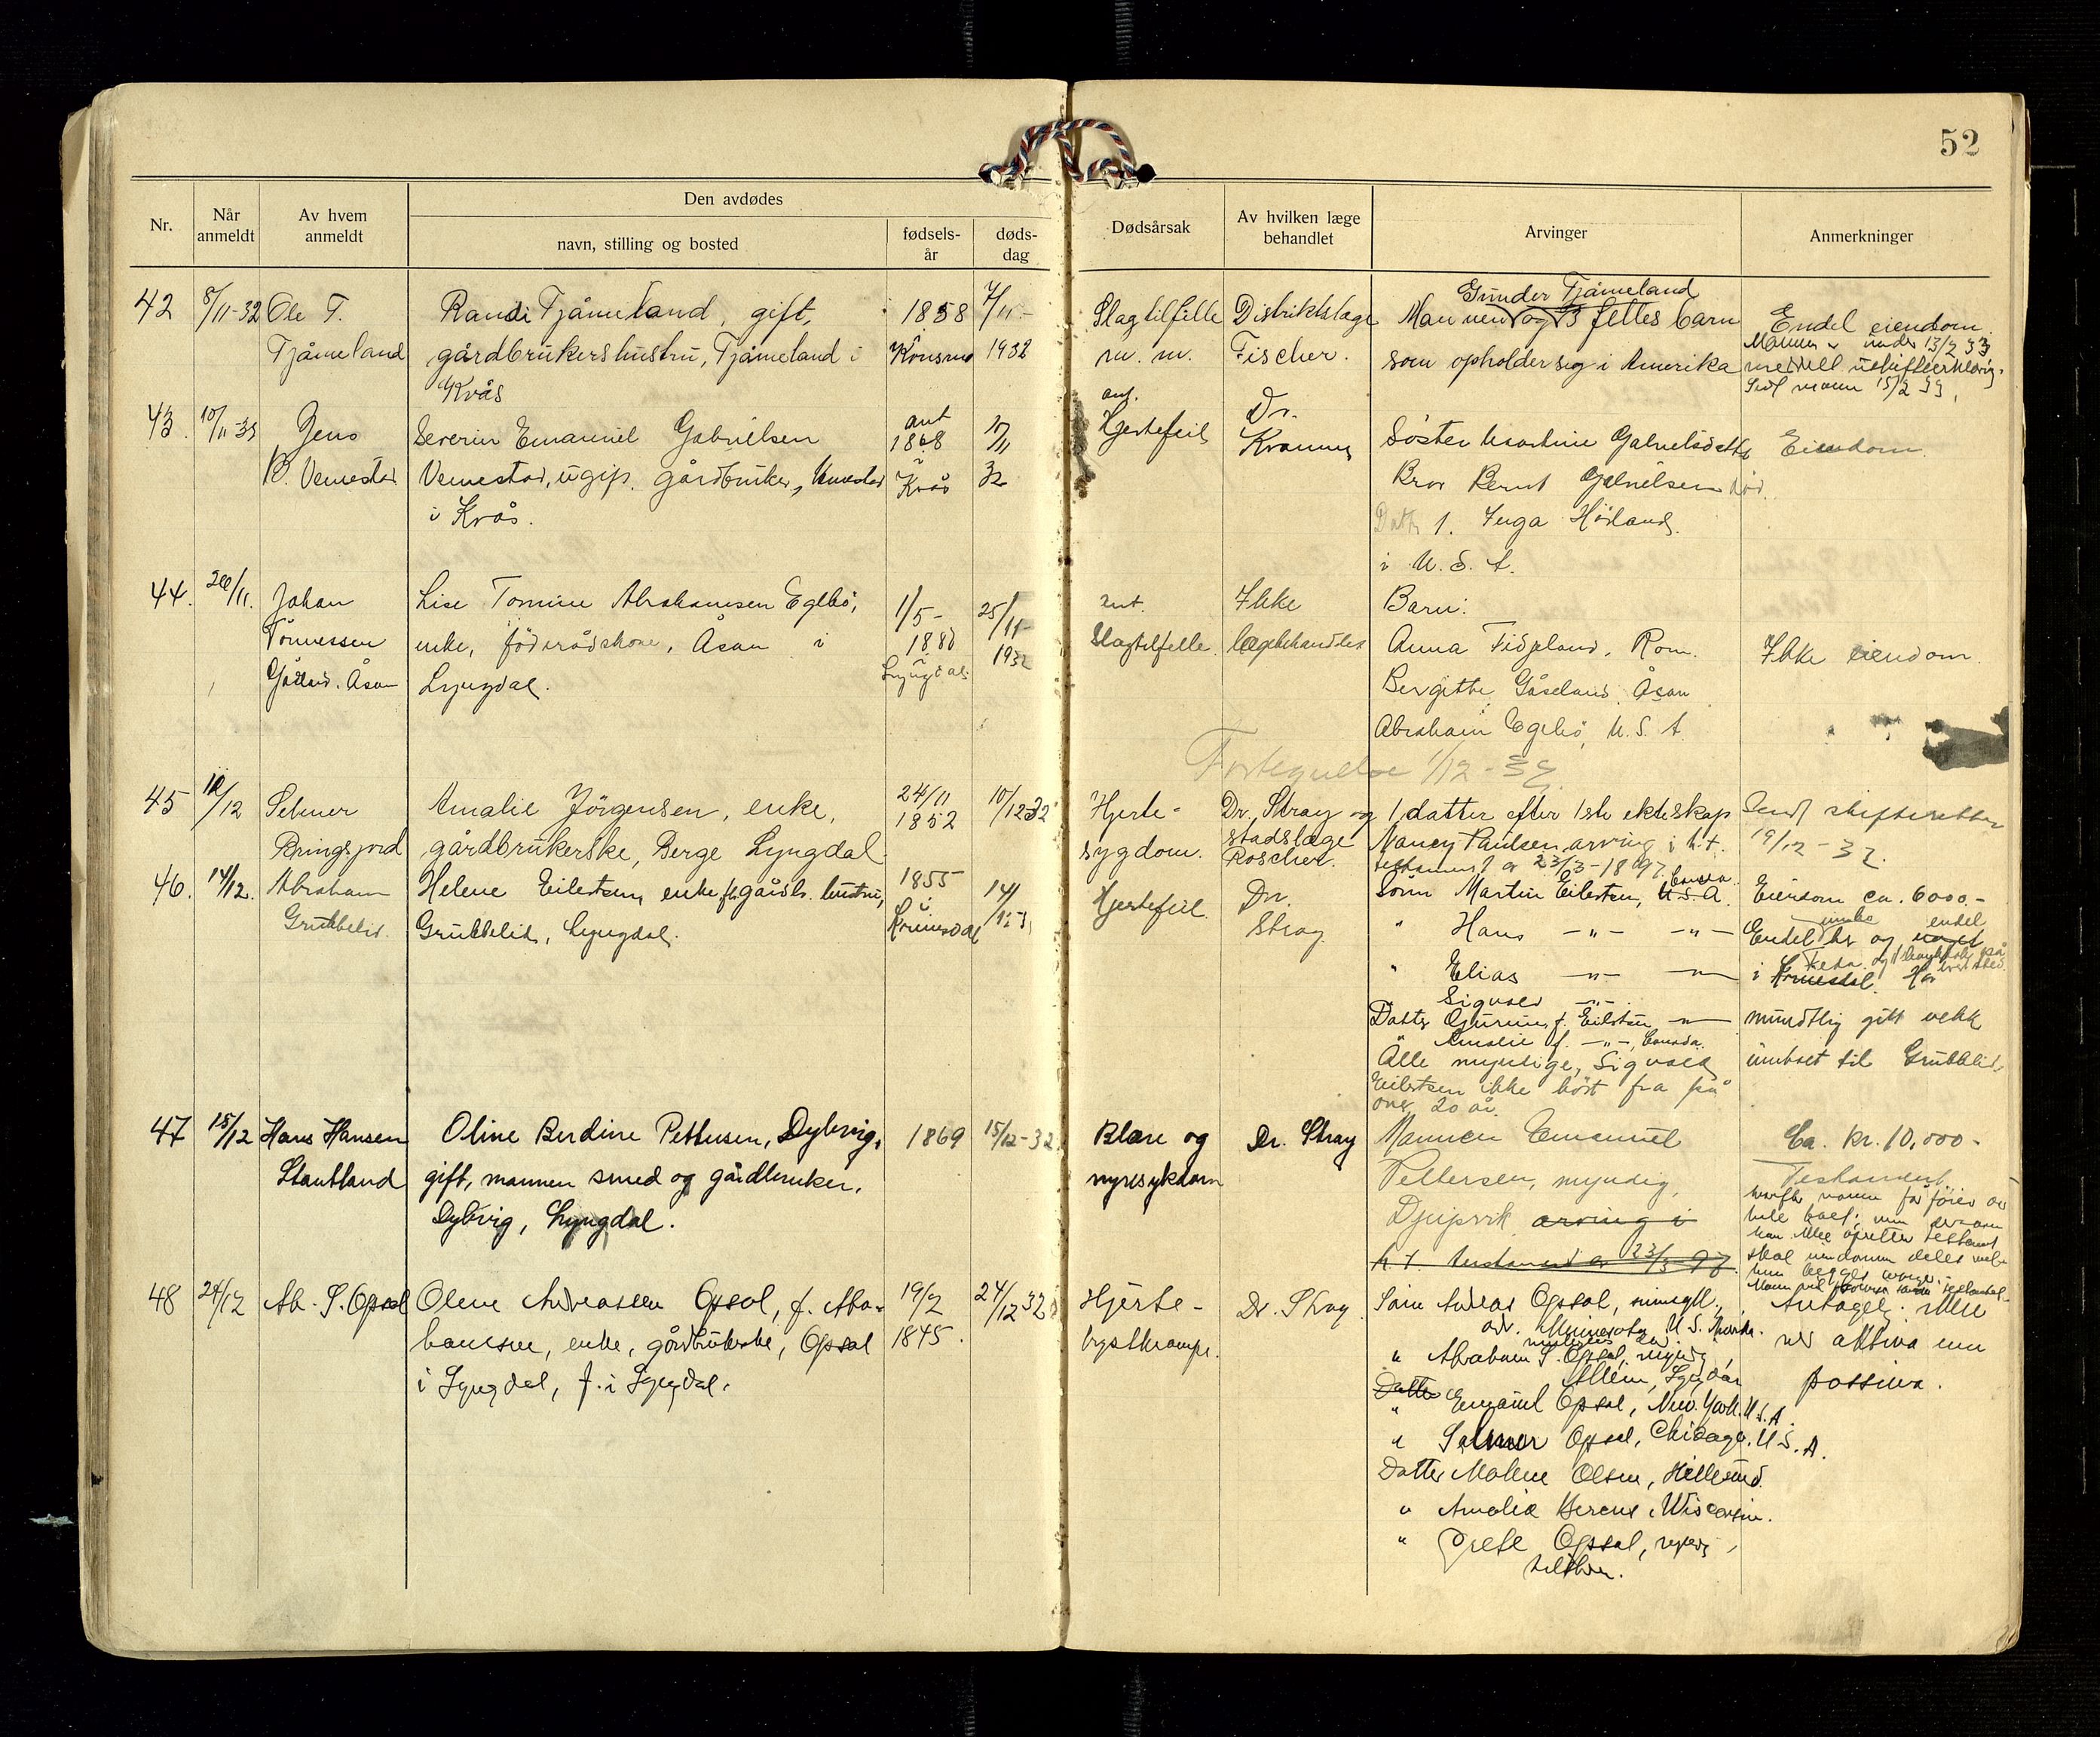 52
Nr.
Når anmeldt
Av hvem anmeldt
Den avdødes
navn, stilling og bosted
fødsels-år
døds-dag
Dødsårsak
Av hvilken læge behandlet
Arvinger
Anmerkninger
42
8/11-32
Ole T.
Tjåmeland
Randi Tjåmeland, gift,
gårdbrukershustru, Tjåmeland i
Kvås
1858
Konsmo
7/11-
1932
Slagtilfelle
m. m.
Distriktslæge
Fischer.
Gunder Tjåmeland
Mannen og 3 felles barn
som opholder sig i Amerika
Endel eiendom.
13/2 33
Sedl mann 15/2 33.
43.
10/11-32
Jens
B. Vemestad
Severin Emanuel Gabrielsen
Vemestad, ugift, gårdbruker, Vemestad
i Kvås.
ant
1868
i
Kvås
11
32
ant.
Hjertefeil
Dr.
Søster Martine Gabrielsdatter
Bror Bernt Gabrielsen død.
Datter 1. Inga Høiland
i U. S. A.
Eiendom.
44.
26/11.
Johan
Tönnessen
Gåseland. Åsan
Lise Tomine Abrahamsen Egebö,
enke, föderådskone, Åsan i
Lyngdal.
1/5-
1880
i
Lyngdal.
25/11-
1932
Ant.
Slagtilfelle.
Ikke
lægebehandlet
Barn:
Anna Fidjeland, Rom.
Bergitte Gåseland Åsan
Abraham Egebö, U. S. A.
Ikke eiendom.
Fortegnelse 1/12-32
45
12/12
Selmer
Rringsjord
Amalie Jörgensen, enke,
gårdbrukerske, Berge Lyngdal.
24/11
1852
10/12 32
Hjerte-
sygdom.
Dr. Stray og
stadslæge
Roscher.
1 datter efter 1ste ekteskap
Nancy Paulsen, arving i h.t.
testament av 23/3-1897.
Sendt skifteretten
19/12-32.
46.
14/12.
Abraham
Grubbelid.
Helene Eilertsen, enke, gårdb. hustru,
Grubbelid, Lyngdal.
1855
i
14/12
Hjertefeil.
Dr.
Stray
Sönn Martin Eilertsen, U.S.A. Canada
" Hans -"- -"-
" Elias -"- -"-
Sigvald -"-
Datter Gurine f. Eilertsen -"-
" Amalie f. -"-, Canada.
Alle myndige, Sigvald
Eilertsen ikke hört fra på
over 20 år.
Eiendom ca. 6000.-
Endel og endel
i Har
mundtlig gitt vekk
innboet til Grubbelid.
47
15/12
Hans Hansen
Skautland
Oline Berdine Pettersen, Dybvig,
gift, mannen smed og gårdbruker,
Dybvig, Lyngdal.
1869
15/12-32.
Blære og
nyresykdom
Dr. Stray
Mannen Emanuel
Pettersen, myndig,
Djupvik arving i
h.t. testament av 23/3-97.
Ca. kr. 10,000-
Testament
48
24/12
Ab. S. Opsal
Olene Andreassen Opsal, f. Abra-
hamsen, enke, gårdbrukerske, Opsal
i Lyngdal, f. i Lyngdal.
19/2
1845.
24/12 32
Hjerte-
Dr. Stray
Sönn Andreas Opsal, sinnsyk.,
adr. Minnesota U. S. Amerika.
" Abraham S. Opsal, myndig,
Lyngdal
Datter
" Emanuel Opsal, New York. U. S. A.
" Selmer Opsal, Chicago. U. S. A.
Datter Malene Olsen,
" Amalia Berens, Wisconsin.
" Grete Opsal, myndig,
Antagelig ikke
mer aktiva enn
passiva.